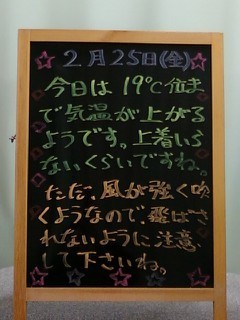 2月25日(金)
今日は19℃位ま
で気温が上がる
ようです。上着いら
ないくらいですね。
ただ、風が強く吹
くようなので、飛ばさ
れないように注意
して下さいね。